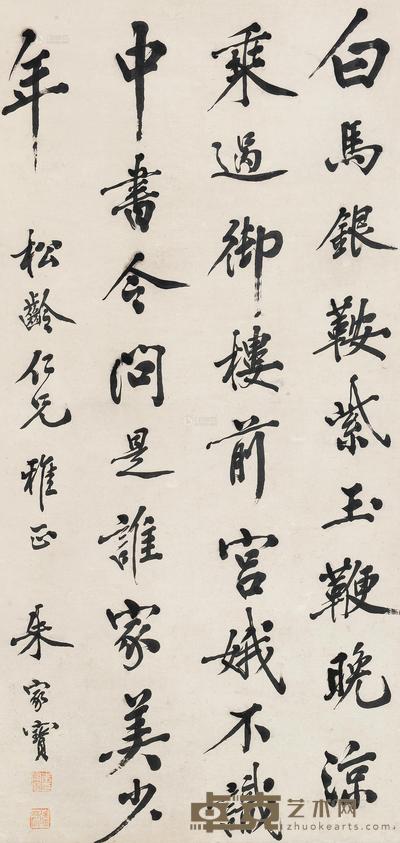 白馬銀鞍紫玉鞭晚涼
乘過御樓前宮娥不識
中書令問是誰家美少
年
松齡仁兄雅正
朱家寶
卓克艺术网
zhuokearts.com